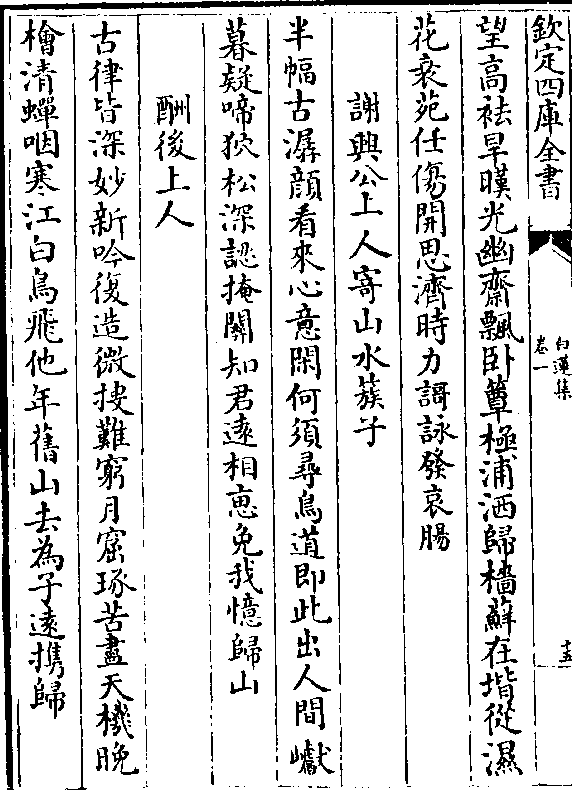 欽定四庫全書
白蓮集
卷一
十五
望高袪旱暵光幽齋飄臥簟極浦洒歸檣蘚在堦從濕
花衰苑任傷開思濟時力謌詠發哀腸
謝興公上人寄山水簇子
半幅古潺顏看來心意閑何須尋鳥道即此出人間巘
暮疑啼狖松深認掩關知君遠相惠免我憶歸山
酬後上人
古律皆深妙新吟復造微搜難窮月窟琢苦盡天機晚
檜清蟬咽寒江白鳥飛他年舊山去為子遠攜歸